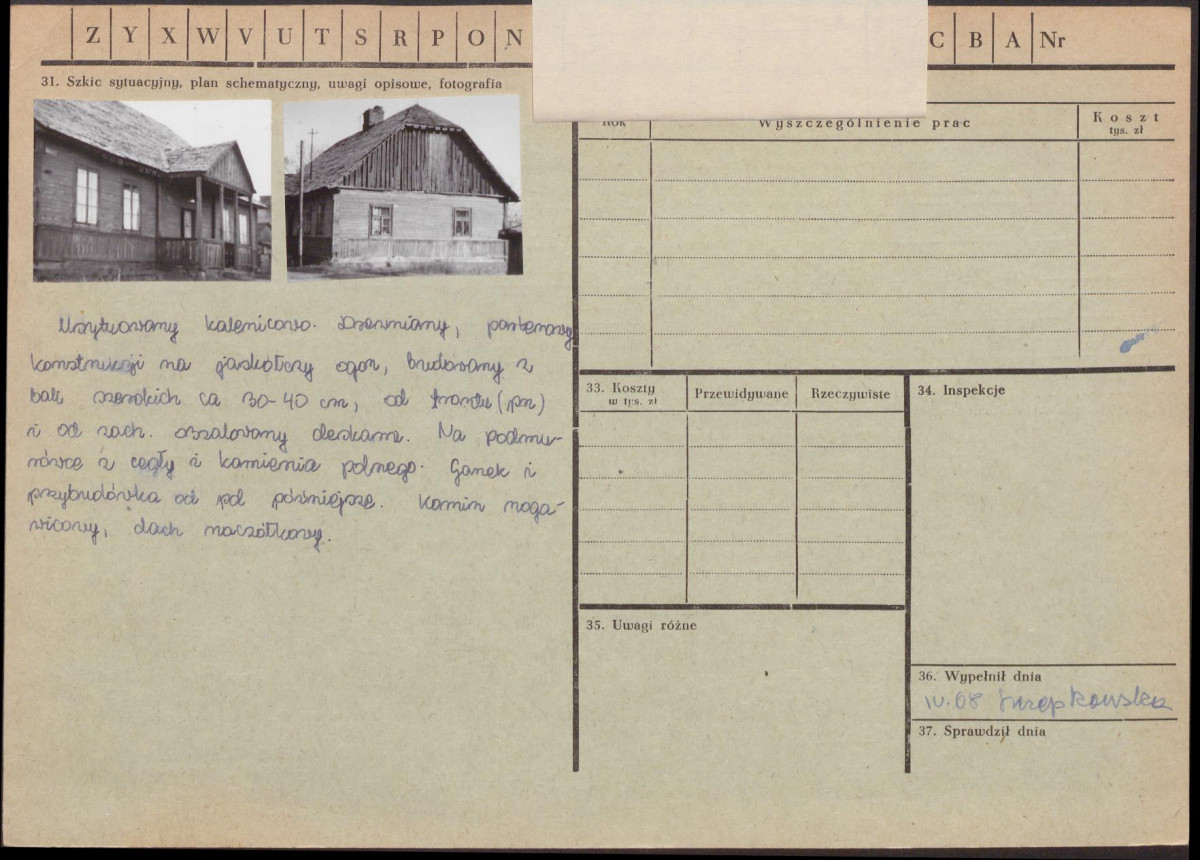 Z Y X W V U T S R P O N
C B A Nr
31. Szkic sytuacyjny, plan schematyczny, uwagi opisowe, fotografia
Usytuowany kalenicowo. Drewniany, parterowy
konstrukcji na jaskółczy ogon, budowany z
bali szerokich ca 30-40 cm, od frontu (pn)
i od zach. oszalowany deskami. Na podmu-
rówce z cegły i kamienia polnego. Ganek i
przybudówka od pd późniejsze. Komin noga-
wicowy, dach naczółkowy.
Rok
Wyszczególnienie prac
Koszt
tys. zł
33. Koszty
w tys. zł
Przewidywane
Rzeczywiste
34. Inspekcje
35. Uwagi różne
36. Wypełnił dnia
IV.68
37. Sprawdził dnia